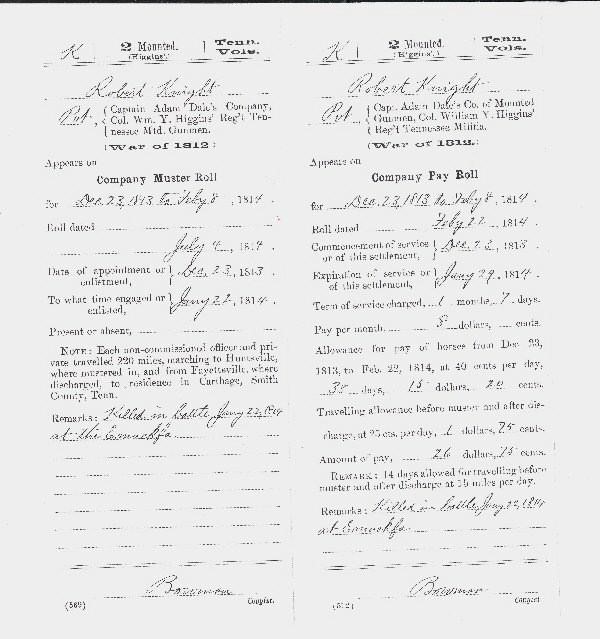 K | 2 Mounted. (Higgins'.) | Tenn. Vols.
Robert Knight
Pvt, { Captain Adam Dale's Company,
Col. Wm. Y. Higgins' Reg't Ten-
nessee Mtd. Gunmen.
(War of 1812.)
Appears on
Company Muster Roll
for Dec 23, 1813 to Feby 8, 1814.
Roll dated
July 4, 1814.
Date of appointment or
enlistment, } Dec. 23, 1813.
To what time engaged or
enlisted, } Jany 22, 1814.
Present or absent,
NOTE: Each non-commissioned officer and pri-
vate travelled 220 miles, marching to Huntsville,
where mustered in, and from Fayetteville, where
discharged, to residence in Carthage, Smith
County, Tenn.
Remarks: Killed in battle, Jany 22, 1814
at the Enuckfa
Bowman
(569) Copyist.
K | 2 Mounted. (Higgins'.) | Tenn. Vols.
Robert Knight
Pvt, { Capt. Adam Dale's Co. of Mounted
Gunmen, Col. William Y. Higgins'
Reg't Tennessee Militia.
(War of 1812.)
Appears on
Company Pay Roll
for Dec. 23, 1813 to Feby 8, 1814.
Roll dated Feby 22, 1814
Commencement of service
or of this settlement, } Dec. 23, 1813
Expiration of service or
of this settlement, } Jany 29, 1814.
Term of service charged, 1 months, 7 days.
Pay per month 8 dollars, cents.
Allowance for pay of horses from Dec. 23,
1813, to Feb. 22, 1814, at 40 cents per day,
38 days, 15 dollars, 20 cents.
Travelling allowance before muster and after dis-
charge, at 25 cts. per day, 1 dollars, 75 cents.
Amount of pay, 26 dollars, 75 cents.
REMARK: 14 days allowed for travelling before
muster and after discharge at 15 miles per day.
Remarks: Killed in battle, Jany 22, 1814
at Enuckfa
Bowman
(512) Copyist